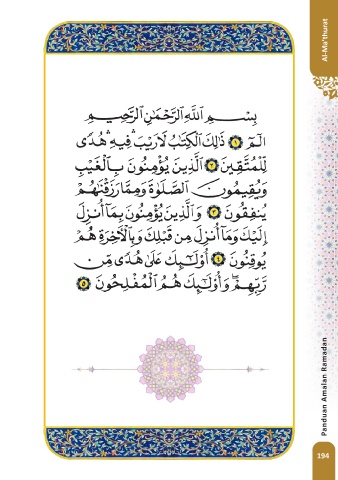 Al-Ma'thurat
بِسْمِ ٱللَّهِ ٱلرَّحْمَٰنِ ٱلرَّحِيمِ
الٓمٓ ١ ذَٰلِكَ ٱلْكِتَٰبُ لَا رَيْبَ ۛ فِيهِ ۛ هُدًى
لِّلْمُتَّقِينَ ٢ ٱلَّذِينَ يُؤْمِنُونَ بِٱلْغَيْبِ
وَيُقِيمُونَ ٱلصَّلَوٰةَ وَمِمَّا رَزَقْنَٰهُمْ
يُنفِقُونَ ٣ وَٱلَّذِينَ يُؤْمِنُونَ بِمَآ أُنزِلَ
إِلَيْكَ وَمَآ أُنزِلَ مِن قَبْلِكَ وَبِٱلْءَاخِرَةِ هُمْ
يُوقِنُونَ ٤ أُو۟لَٰٓئِكَ عَلَىٰ هُدًى مِّن
رَّبِّهِمْ ۖ وَأُو۟لَٰٓئِكَ هُمُ ٱلْمُفْلِحُونَ ٥
Panduan Amalan Ramadan
194